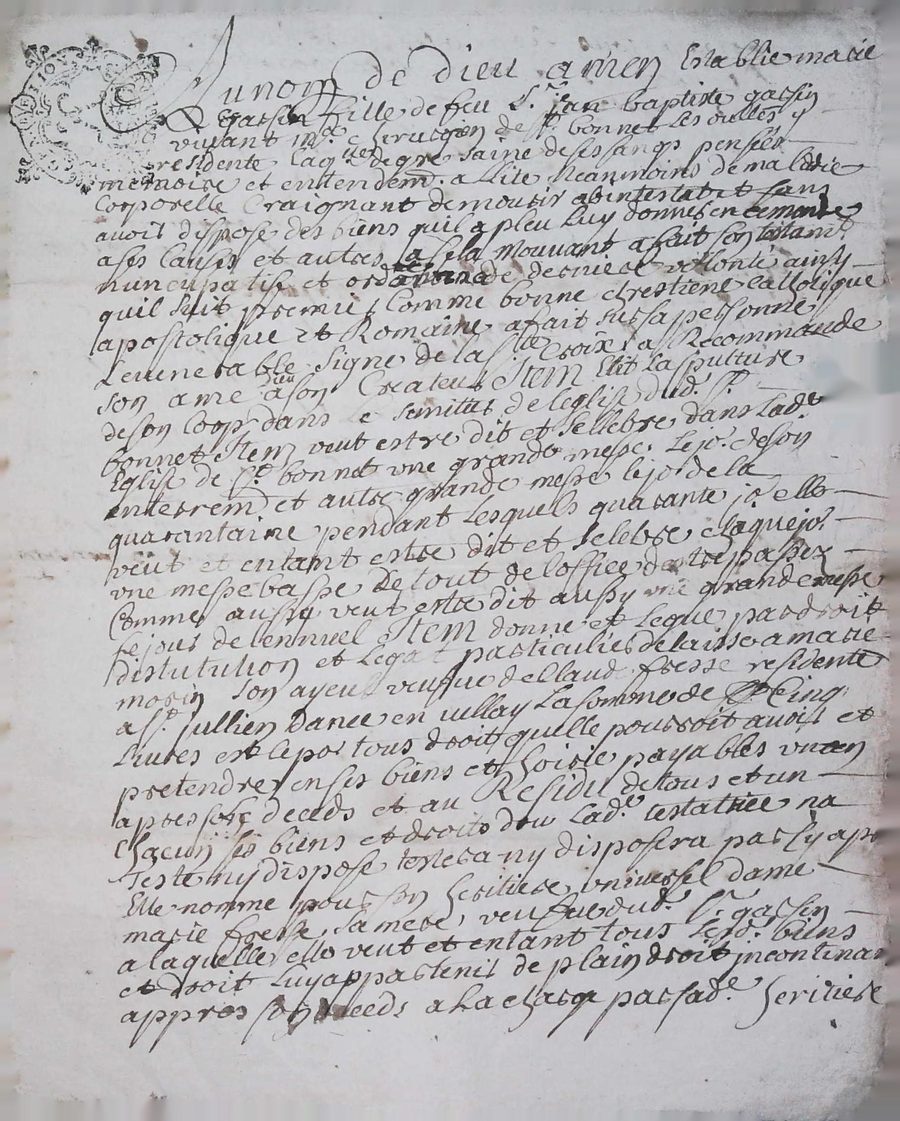 Au nom de dieu amen Establie marie
gassin fille de feu Sr. jan baptiste gassin
vivant me. chirurgien de St. bonnet les oulles y
residente laqlle de gre saine de ses sangs pensées
memoire et enttendemt. a lite neanmoins de maladie
Corporelle Craignant de mourir abintestat et sans
avoir disposé des biens quil a pleu luy donner en ce monde
a ses causes et autres la mouvant a fait son testamt
nuncupatif et ordonnance de derniere vollonté ainsy
quil suit premier Comme bonne chrestiene Catholique
apostolique et Romaine a fait sur sa personne
Le venerable signe de la Ste. Croix a Recommande
son ame a dieu son Createur Item Elit la sepulture
de son Corp dans le semittier de leglise dud. St.
bonnet Item veut estre dit et sellebré dans lade.
Eglise de St. bonnet une grande messe le jo. de son
enterremt et autre grande messe le jo. de la
quarantaine pendant lesquels quarante jo. elle
veut et entant estre dit et selebré chaque jo.
une messe basse de tout de loffice des trepassez
Comme aussy veut estre dit aussy une grande messe
le jour de lennuel Item donne et legue par droit
distitution et legat particulier delaisse a marie
morin son ayeul veufve de Claude fresse residente
a St. jullien dance en vellay la somme de Cinq
livres et ce por tous droit quelle pourroit avoir et
pretendre en ses biens et hoirie payables un an
apres sond. deceds et au Residu de tous et un
Chacun ses biens et droits dou lade. testatrice na
Testé ny disposé testera ny disposera par sy apr
Elle nomme pour son heritiere universel dame
marie fresse sa mere veufve dud. Sr. gassin
a laquelle elle veut et entant tous sesd. biens
et droit luy appartenir de plain droit incontinan
appres son deceds a la charge par lade. heritiere